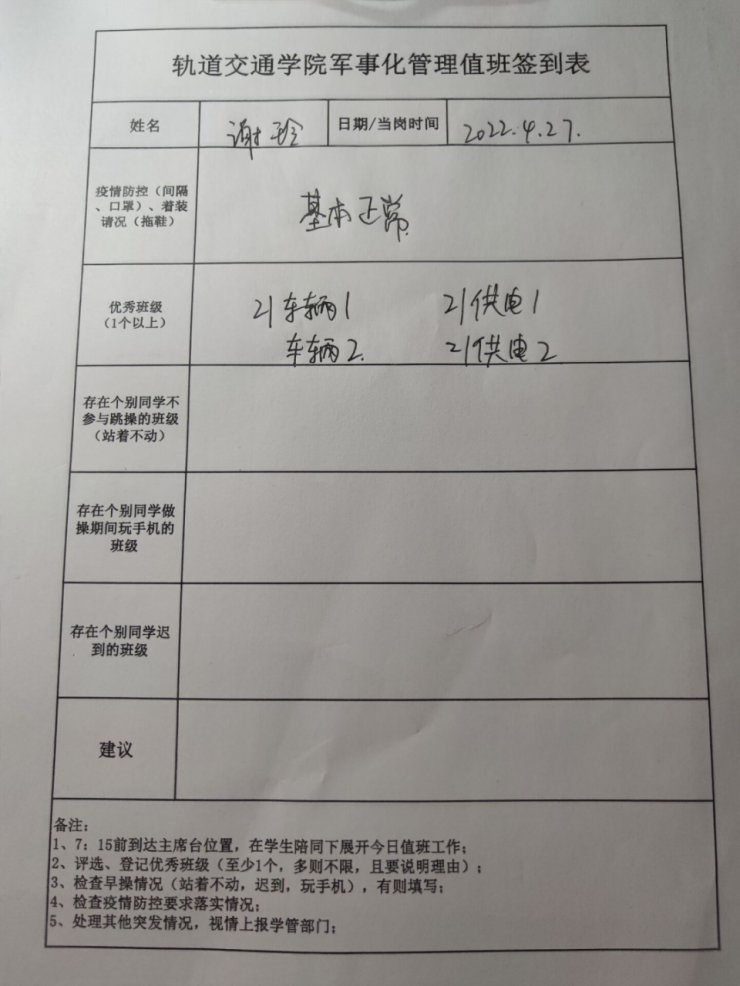 轨道交通学院军事化管理值班签到表
姓名
谢玲
日期/当岗时间
2022.4.27.
疫情防控（间隔
、口罩）、着装
请况（拖鞋）
基本正常
优秀班级
（1个以上）
21车辆1 21供电1
车辆2 21供电2
存在个别同学不
参与跳操的班级
（站着不动）
存在个别同学做
操期间玩手机的
班级
存在个别同学迟
到的班级
建议
备注：
1、7：15前到达主席台位置，在学生陪同下展开今日值班工作；
2、评选、登记优秀班级（至少1个，多则不限，且要说明理由）；
3、检查早操情况（站着不动，迟到，玩手机），有则填写；
4、检查疫情防控要求落实情况；
5、处理其他突发情况，视情上报学管部门；